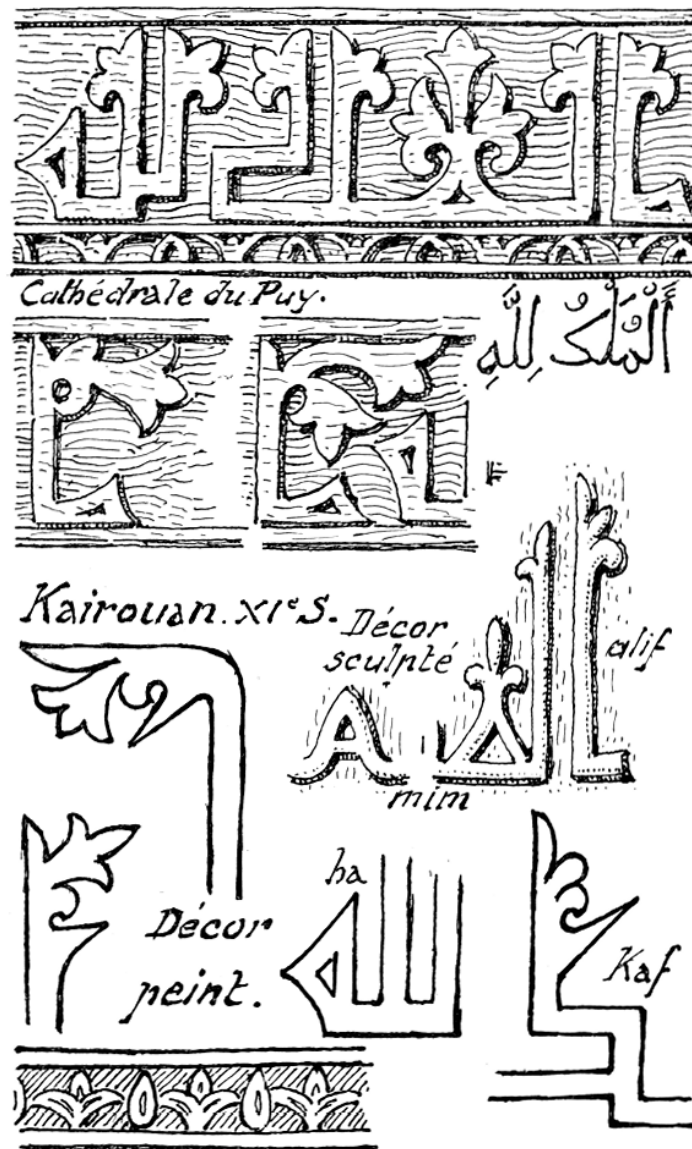 Cathédrale du Puy.
الْمُلْكُ لِلَّهِ
Kairouan. XIe S.
Décor
sculpté
alif
mim
ha
Décor
peint.
Kaf